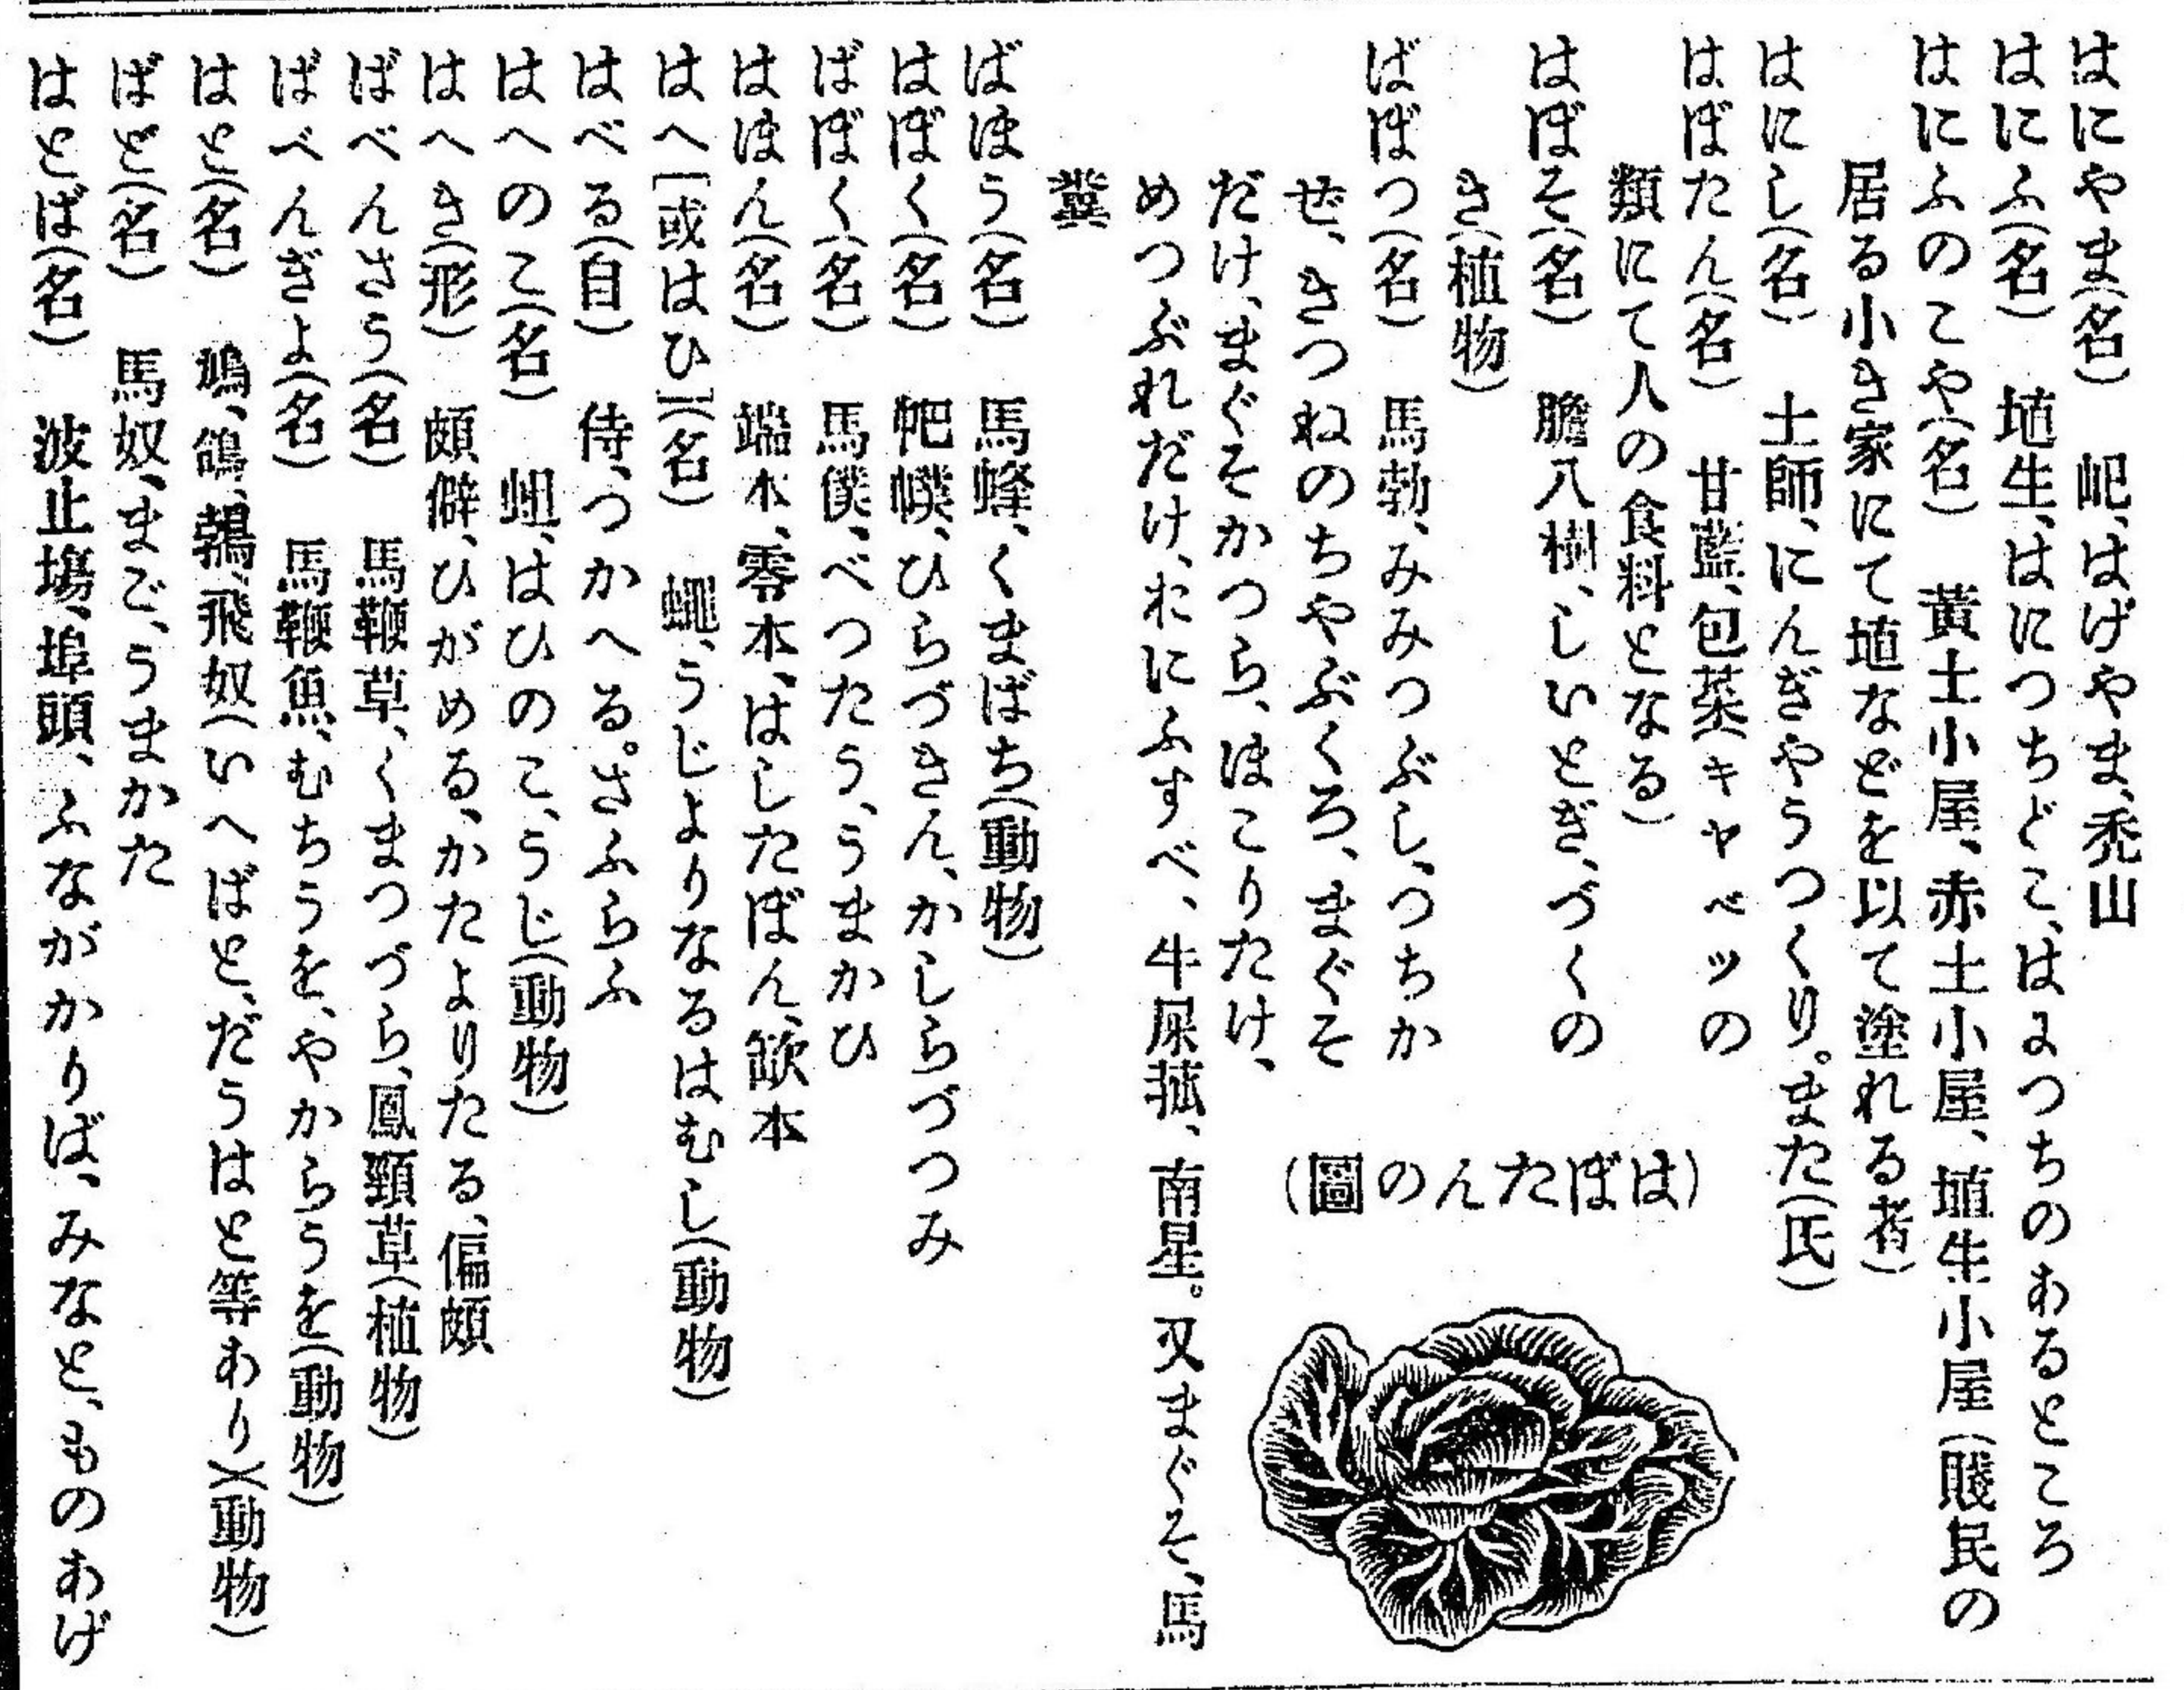 はにやま(名)　屺、はげやま、禿山
はにふ(名)　埴生、はにつちどこ、はにつちのあるところ
はにふのこや(名)　黃土小屋、赤土小屋、埴生小屋(賤民の
居る小き家にて埴などを以て塗れる者)
はにし(名)　土師、にんぎやうつくり。また(氏)
はぼたん(名)　甘藍、包菜(キャベツの
類にて人の食料となる)
はぼそ(名)　膽八樹、しいとぎ、づくの
き(植物)
ばぼつ(名)　馬勃、みみつぶし、つちか
ぜ、きつねのちやぶくろ、まぐそ
だけ、まぐそかつら、ほこりたけ、
めつぶれだけ、おにふすべ、牛屎菰、南星。又まぐそ、馬
糞
(はぼたんの圖)
ばほう(名)　馬蜂、くまばち(動物)
はぼく(名)　帊幞、ひらづきん、かしらづつみ
ばぼく(名)　馬僕、べつたう、うまかひ
はほん(名)　端本、零本、はしたぼん、歃本
はへ[或はひ](名)　蠅、うじよりなるはむし(動物)
はべる(自)　侍、つかへる。さふらふ
はへのこ(名)　蛆、はひのこ、うじ(動物)
はへき(形)　頗僻、ひがめる、かたよりたる、偏頗
ばべんさう(名)　馬鞭草、くまつづら、鳳頸草(植物)
ばべんぎよ(名)　馬鞭魚、むちうを、やからうを(動物)
はと(名)　鳩、鴿、鶉、飛奴(いへばと、だうはと等あり)(動物)
ばど(名)　馬奴、まご、うまかた
はとば(名)　波止塲、埠頭、ふながかりば、みなと、ものあげ